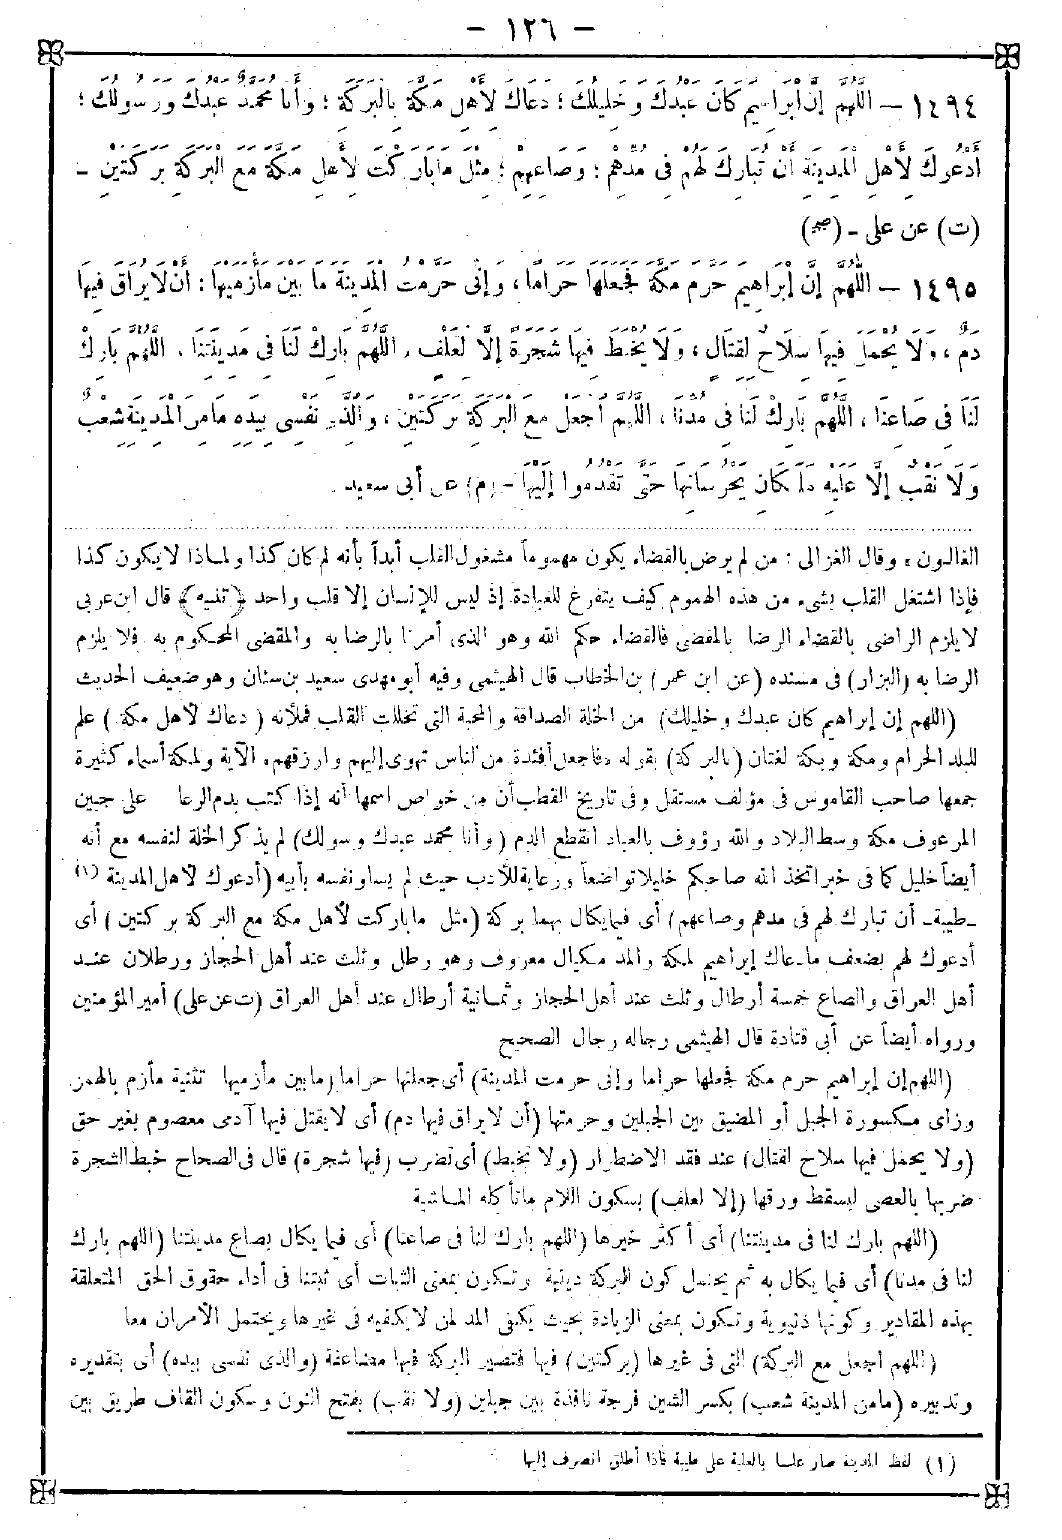 - ١٢٦ -
١٤٩٤ - اللَّهُمَّ إِنَّ إِبْرَاهِيمَ كَانَ عَبْدَكَ وَخَلِيلَكَ ؛ دَعَاكَ لِأَهْلِ مَكَّةَ بِالْبَرَكَةِ ؛ وَأَنَا مُحَمَّدٌ عَبْدُكَ وَرَسُولُكَ ؛
أَدْعُوكَ لِأَهْلِ الْمَدِينَةِ أَنْ تُبَارِكَ لَهُمْ فِي مُدِّهِمْ ؛ وَصَاعِهِمْ ؛ مِثْلَ مَا بَارَكْتَ لِأَهْلِ مَكَّةَ مَعَ الْبَرَكَةِ بَرَكَتَيْنِ -
(ت) عن على - (صح)
١٤٩٥ - اللَّهُمَّ إِنَّ إِبْرَاهِيمَ حَرَّمَ مَكَّةَ فَجَعَلَهَا حَرَامًا ، وَإِنِّى حَرَّمْتُ الْمَدِينَةَ مَا بَيْنَ مَأْزِمَيْهَا : أَنْ لَا يُرَاقَ فِيهَا
دَمٌ ، وَلَا يُحْمَلَ فِيهَا سِلَاحٌ لِقِتَالٍ ، وَلَا يُخْبَطَ فِيهَا شَجَرَةٌ إِلَّا لِعَلْفٍ ، اللَّهُمَّ بَارِكْ لَنَا فِى مَدِينَتِنَا ، اللَّهُمَّ بَارِكْ
لَنَا فِى صَاعِنَا ، اللَّهُمَّ بَارِكْ لَنَا فِى مُدِّنَا ، اللَّهُمَّ اجْعَلْ مَعَ الْبَرَكَةِ بَرَكَتَيْنِ ، وَالَّذِى نَفْسِى بِيَدِهِ مَا مِنَ الْمَدِينَةِ شِعْبٌ
وَلَا نَقْبٌ إِلَّا عَلَيْهِ مَلَكَانِ يَحْرُسَانِهَا حَتَّى تَقْدُمُوا إِلَيْهَا - (م) عن أبى سعيد .
الغالون ، وقال الغزالى : من لم يرض بالقضاء يكون مهموماً مشغول القلب أبداً بأنه لم كان كذا ولماذا لا يكون كذا
فإذا اشتغل القلب بشىء من هذه الهموم كيف يتفرغ للعبادة إذ ليس للإنسان إلا قلب واحد ﴿تنبيه﴾ قال ابن عربى
لا يلزم الراضى بالقضاء الرضا بالمقضى فالقضاء حكم الله وهو الذى أمرنا بالرضا به والمقضى المحكوم به فلا يلزم
الرضا به (البزار) فى مسنده (عن ابن عمر) بن الخطاب قال الهيثمى وفيه أبو مهدى سعيد بن سنان وهو ضعيف الحديث
(اللهم إن إبراهيم كان عبدك وخليلك) من الخلة الصداقة والمحبة التى تخللت القلب فملأنه (دعاك لأهل مكة) علم
للبلد الحرام ومكة وبكة لغتان (بالبركة) بقوله «فاجعل أفئدة من الناس تهوى إليهم وارزقهم» الآية ولمكة أسماء كثيرة
جمعها صاحب القاموس فى مؤلف مستقل وفى تاريخ القطب أن من خواص اسمها أنه إذا كتب بدم الرعا على جبين
المرعوف مكة وسط البلاد والله رؤوف بالعباد انقطع الدم (وأنا محمد عبدك وسولك) لم يذكر الخلة لنفسه مع أنه
أيضاً خليل كما فى خبر اتخذ الله صاحبكم خليلا تواضعاً ورعاية للأدب حيث لم يساو نفسه بأبيه (أدعوك لأهل المدينة (١)
-طيبة- أن تبارك لهم فى مدهم وصاعهم) أى فيما يكال بهما بركة (مثل ما باركت لأهل مكة مع البركة بركتين) أى
أدعوك لهم بضعف ما دعاك إبراهيم لمكة والمد مكيال معروف وهو رطل وثلث عند أهل الحجاز ورطلان عند
أهل العراق والصاع خمسة أرطال وثلث عند أهل الحجاز وثمانية أرطال عند أهل العراق (ت عن على) أمير المؤمنين
ورواه أيضاً عن أبى قتادة قال الهيثمى رجاله رجال الصحيح
(اللهم إن إبراهيم حرم مكة فجعلها حراما وإنى حرمت المدينة) أى جعلتها حراما (ما بين مأزميها) تثنية مأزم بالهمز
وزاى مكسورة الجبل أو المضيق بين الجبلين وحرمتها (أن لا يراق فيها دم) أى لا يقتل فيها آدمى معصوم بغير حق
(ولا يحمل فيها سلاح لقتال) عند فقد الاضطرار (ولا تخبط) أى تضرب (فيها شجرة) قال فى الصحاح خبط الشجرة
ضربها بالعصى ليسقط ورقها (إلا لعلف) بسكون اللام ما تأكله الماشية
(اللهم بارك لنا فى مدينتنا) أى أكثر خيرها (اللهم بارك لنا فى صاعنا) أى فيما يكال بصاع مدينتنا (اللهم بارك
لنا فى مدنا) أى فيما يكال به ثم يحتمل كون البركة دينية وتكون بمعنى الثبات أى ثبتنا فى أداء حقوق الحق المتعلقة
بهذه المقادير وكونها دنيوية وتكون بمعنى الزيادة بحيث يكفى المد لمن لا يكفيه فى غيرها ويحتمل الأمران معا
(اللهم اجعل مع البركة) التى فى غيرها (بركتين) فيها فتصير البركة فيها مضاعفة (والذى نفسى بيده) أى بتقديره
وتدبيره (ما من المدينة شعب) بكسر الشين فرجة نافذة بين جبلين (ولا نقب) بفتح النون وسكون القاف طريق بين
(١) لفظ المدينة صار علما بالغلبة على طيبة فاذا أطلق انصرف إليها